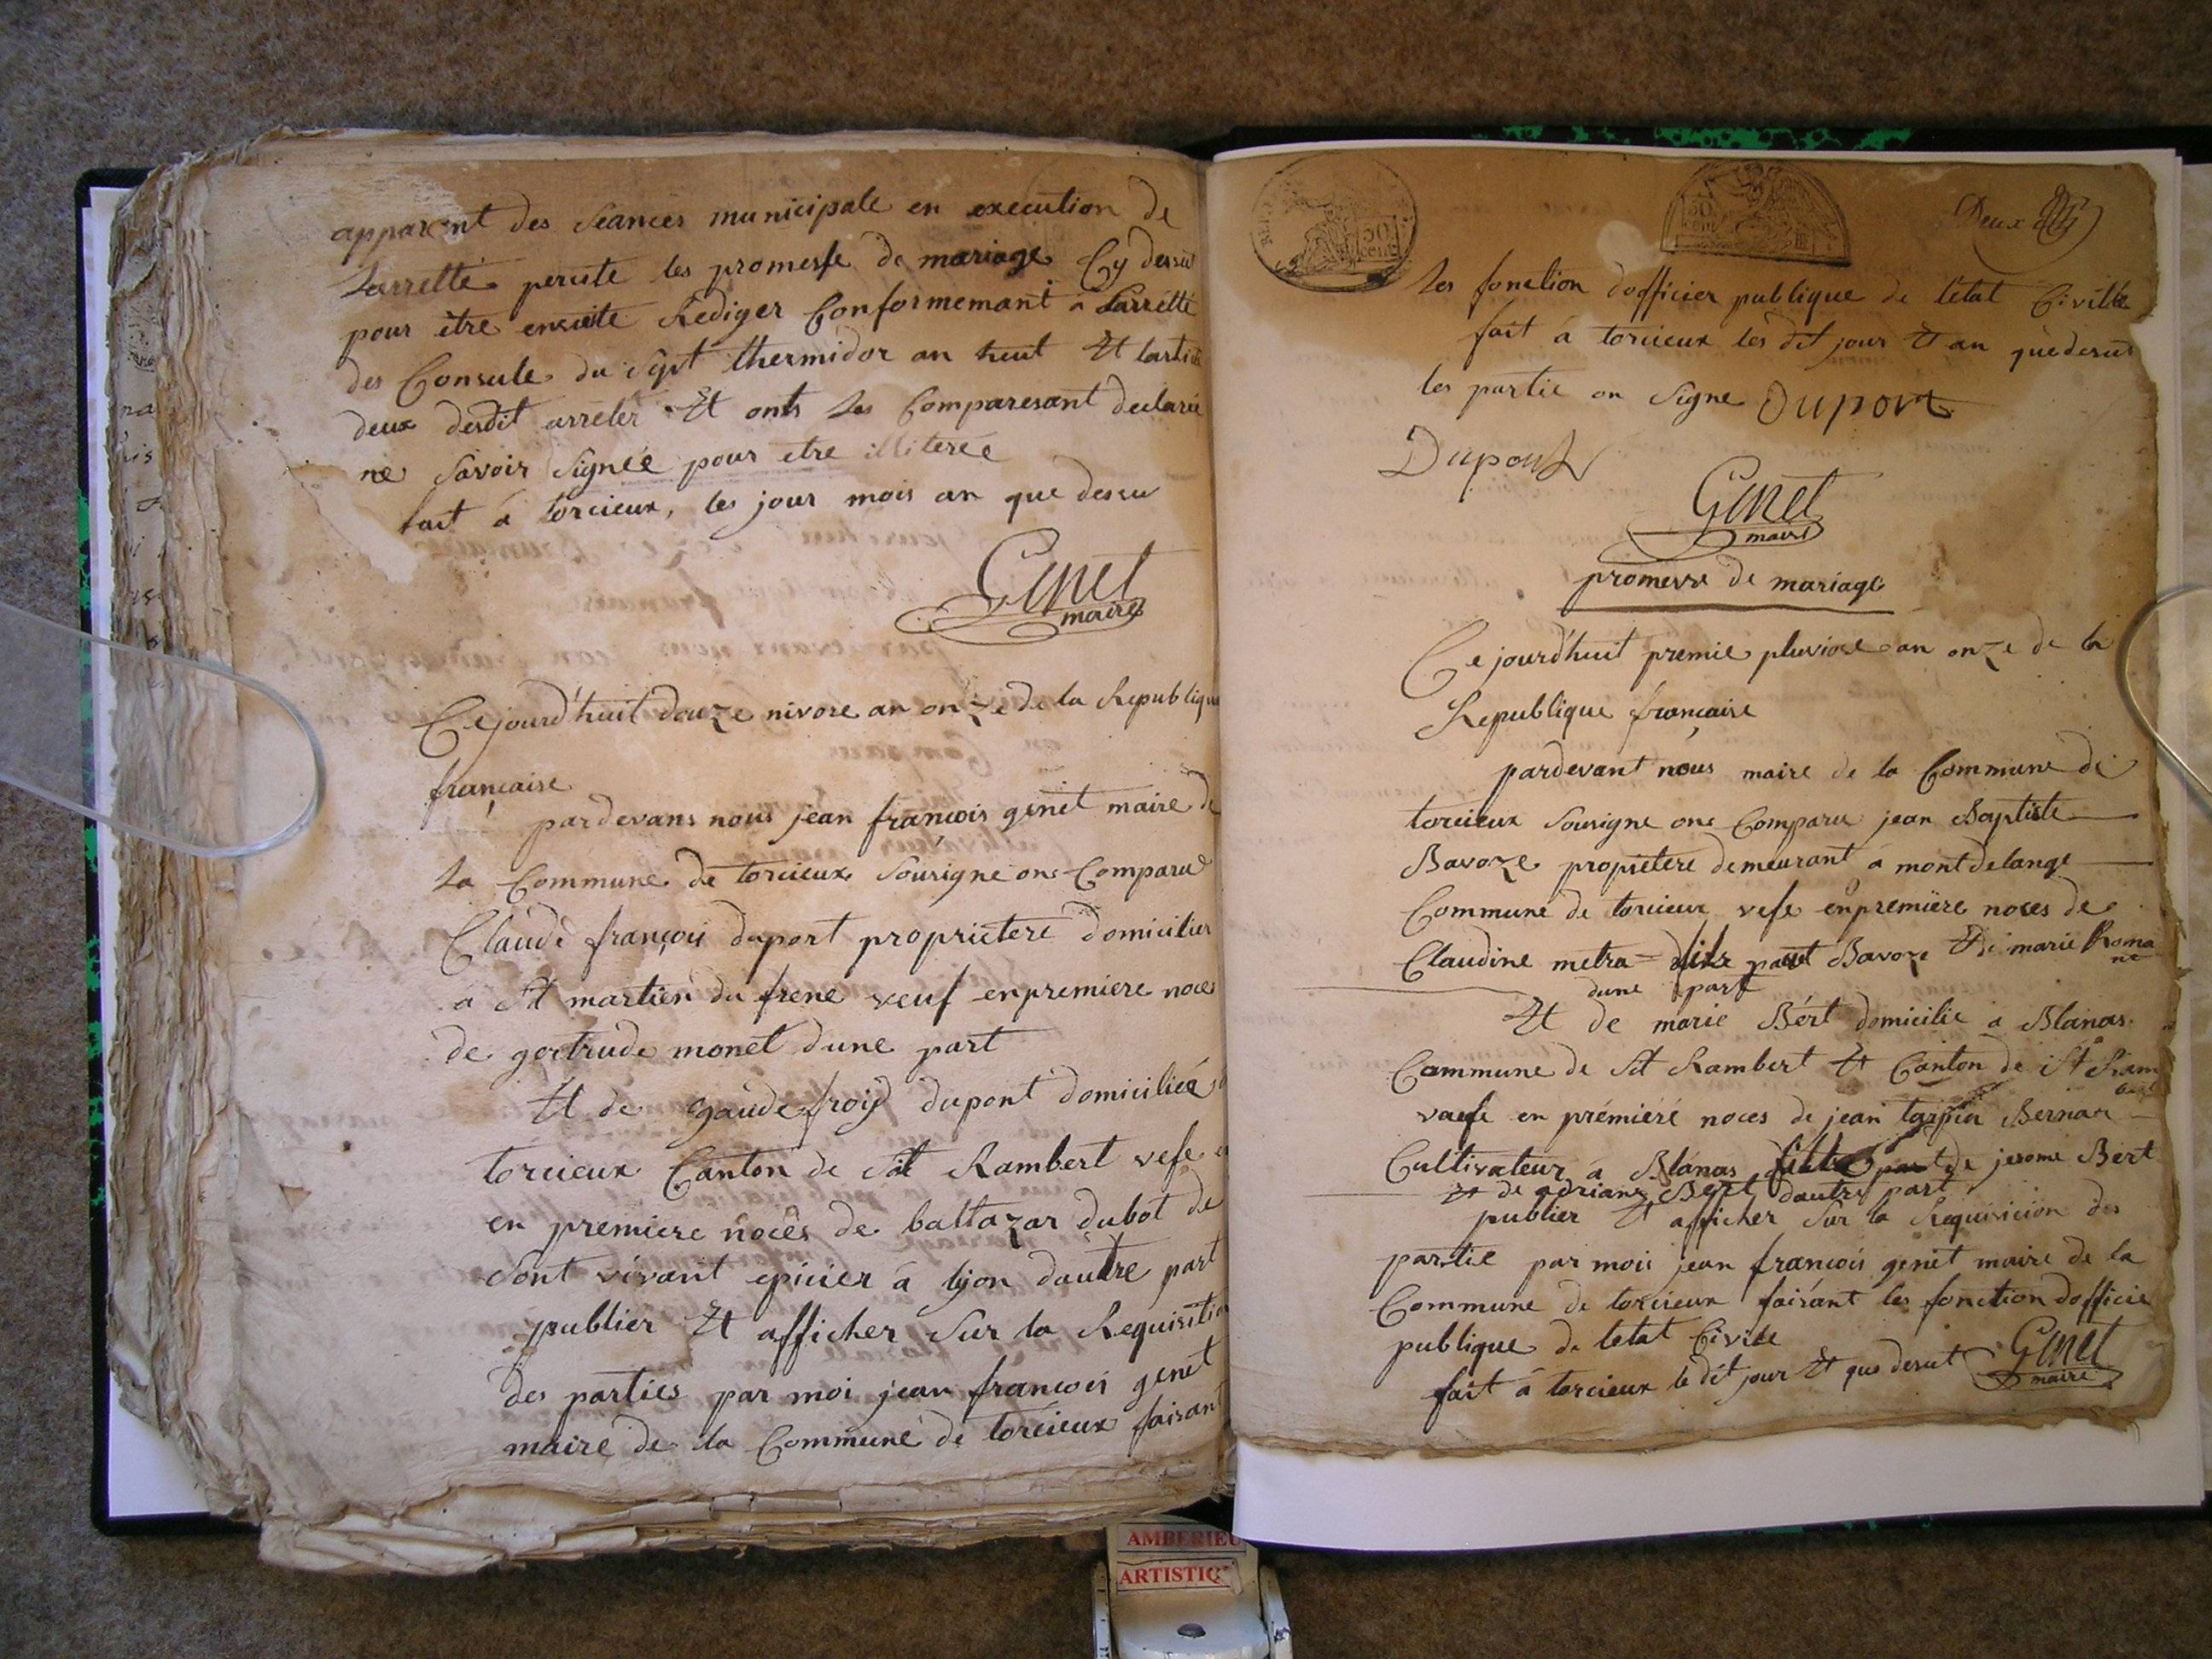 apparent des séances municipale en execution de
larretté precité les promesse de mariage Cy dessu
pour être ensuite Rediger Conformemant a Larrétté
des Consule du Sept thermidor an huit Et lartic
deux desdit arréler Et onts Les Comparesant declarée
ne Savoir Signée pour etre illiterée
fait á torcieux, les jour mois an que dessu
Genet
maire
Cejourd'huit douze nivose an onze de la Republique
française
pardevans nous jean françois genet maire de
La Commune de torcieux Sousigne ons Comparue
Claude françois duport proprietere domicilier
a St martien du frene veuf en premiere noces
de gertrude monet dune part
Et de gaudefroij dupont domiciliée
torcieux Canton de St Rambert vefe
en premiere noces de baltazar dubot de
Sont vivant epicier á lyon dautre part
publier Et afficher Sur la Requisition
des parties par moi jean françois genet
maire de la Commune de torcieux faisant
Deux
50
cent
50
cent
Les fonction dofficier publique de létat Civille
fait á torcieux les dit jour Et an que desus
les partie on Signe Duport
Dupont
Genet
maire
promesse de mariage
Ce jourd'huit premie pluviose an onze de la
Republique française
pardevant nous maire de la Commune de
torcieux Sousigne ons Comparu jean Baptiste
Bavoze proprietere demeurant á montdelange
Commune de torcieux vefe enpremiere noces de
Claudine metra Bavoze Et de marie Roma
ne
dune part
Et de marie Bért domicilie a Blanas
Commune de St Rambert Et Canton de St Ram
bert
vaefe en prémiéré noces de jean tarpin Bernar
Cultivateur á Blanas de jerome Bert
Et de adriane Bert dautre part
publier Et afficher Sur la Requisicion des
partie par mois jean françois genet maire de la
Commune de torcieux faisant les fonction dofficie
publique de letat Civile
fait á torcieux le dit jour Et que desut
Genet
maire
AMBERIEU
ARTISTIQ